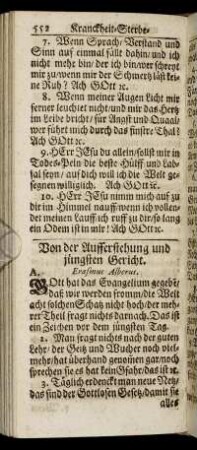 552 Kranckheit-Sterbe-
7. Wenn Sprach/ Verstand und
Sinn auf einmal fällt dahin/ und ich
nicht mehr bin/ der ich bin/ wer schreyt
mir zu/ wenn mir der Schmertz läst kei-
ne Ruh? Ach GOtt ꝛc.
8. Wenn meiner Augen Licht mir
ferner leuchtet nicht/ und mir das Hertz
im Leibe bricht/ für Angst und Quaal/
wer führt mich durch das finstre Thal?
Ach GOtt ꝛc.
9. HErr JEsu du allein/ sollst mir in
Todes-Pein die beste Hülff und Lab-
sal seyn/ auf dich will ich die Welt ge-
segnen williglich. Ach GOtt ꝛc.
10. HErr JEsu nimm mich auf zu
dir im Himmel nauff/ wenn ich vollen-
det meinen Lauff/ ich ruff zu dir/ so lang
ein Odem ist in mir! Ach GOtt ꝛc.
Von der Aufferstehung und
jüngsten Gericht.
A. Erasmus Alberus.
GOtt hat das Evangelium gegebē/
daß wir werden fromm/ die Welt
acht solchen Schatz nicht hoch/ der meh-
rer Theil fragt nichts darnach. Das ist
ein Zeichen vor dem jüngsten Tag.
2. Man fragt nichts nach der guten
Lehr/ der Geitz und Wucher noch viel-
mehr/ hat überhand genom̃en gar/ noch
sprechen sie es hat kein Gfahr/ das ist ꝛc.
3. Täglich erdenckt man neue Netz/
das sind der Gottlosen Gesetz/ damit sie
alles